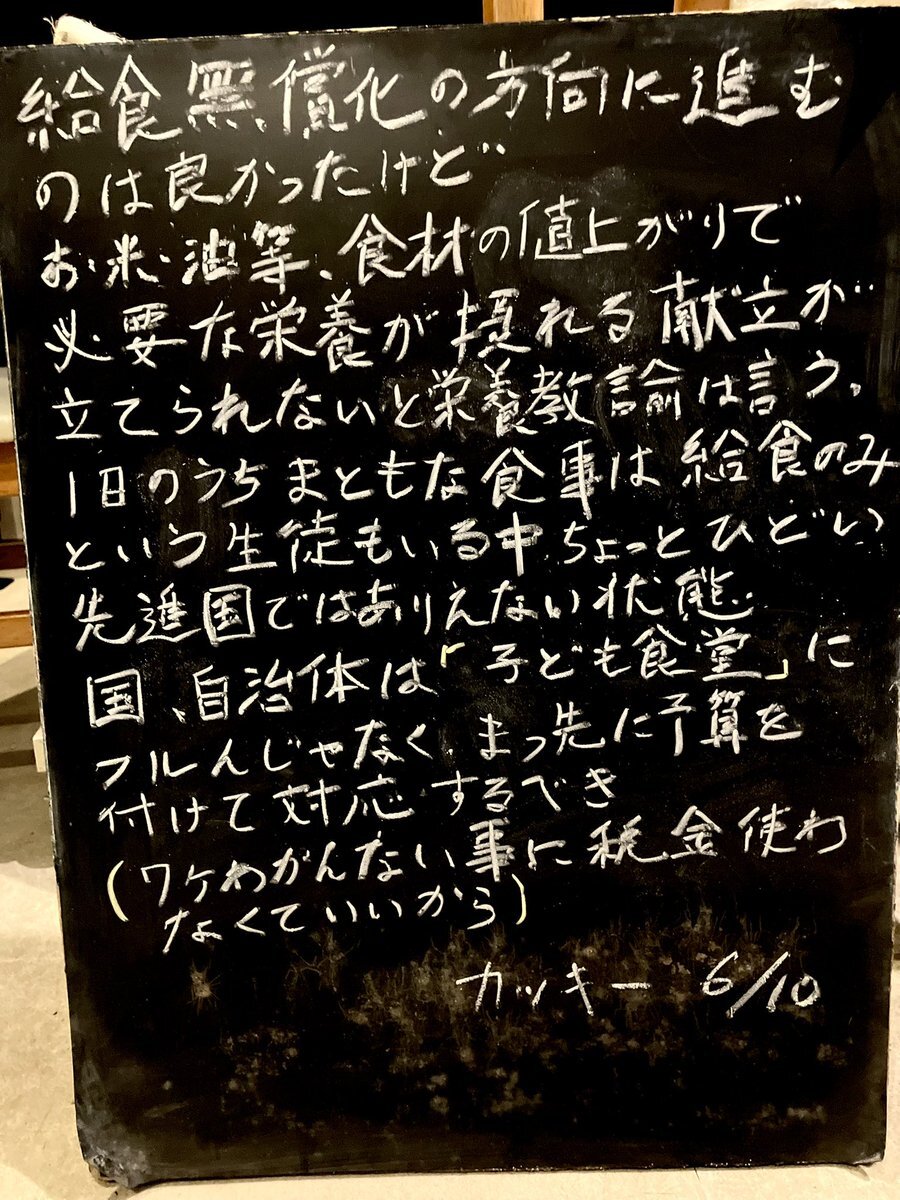 給食無償化の方向に進む
のは良かったけど
お米・油等、食材の値上がりで
必要な栄養が摂れる献立が
立てられないと栄養教諭は言う。
1日のうちまともな食事は給食のみ
という生徒もいる中、ちょっとひどい
先進国ではありえない状態
国、自治体は「子ども食堂」に
フルんじゃなく、まっ先に予算を
付けて対応するべき
(ワケわかんない事に税金使わ
なくていいから)
カッキー 6/10